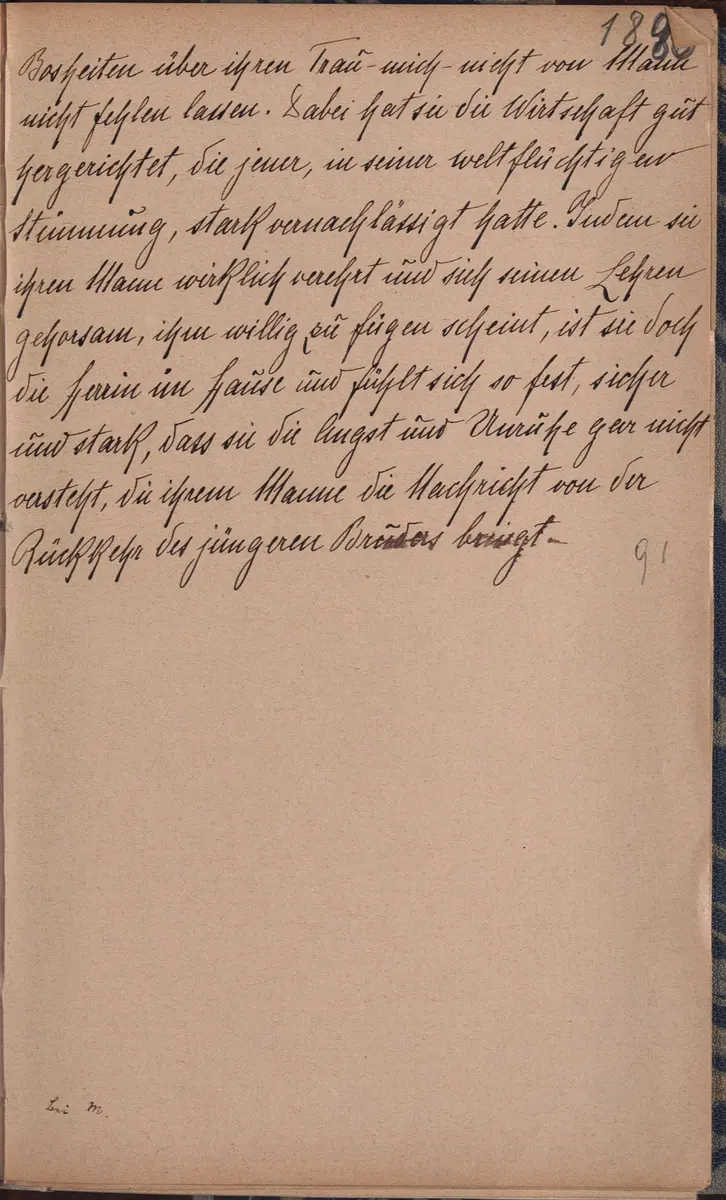 Bosheiten über ihren Trau-mich-nicht von Mann
nicht fehlen lassen. Dabei hat sie die Wirtschaft gut
hergerichtet, die jener, in seiner weltflüchtigen
Stimmung, stark vernachlässigt hatte. Indem sie
ihren Mann wirklich verehrt und sich seinen Lehren
gehorsam, ihm willig zu fügen scheint, ist sie doch
die Herrin im Hause und fühlt sich so fest, sicher
und stark, dass sie die Angst und Unruhe gar nicht
versteht, die ihrem Manne die Nachricht von der
Rückkehr des jüngeren Bruders bringt.
91